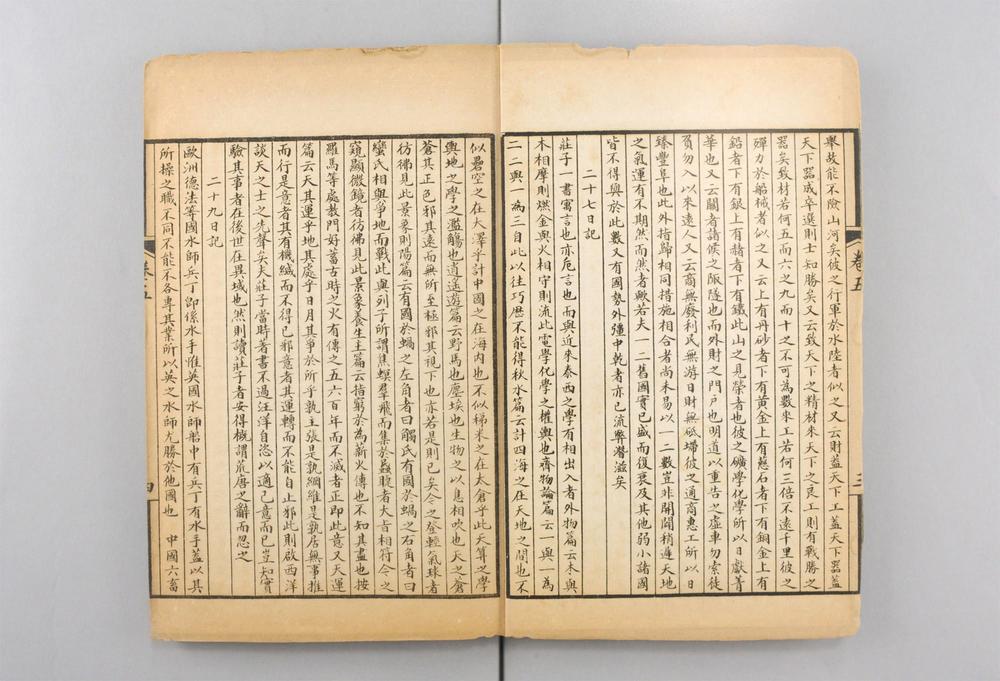 卷五
三
舉故能不險山河矣彼之行軍於水陸者似之又云財蓋天下工蓋天下器蓋
天下器成卒選則士知勝矣又云致天下之精材来天下之良工則有戰勝之
器矣致材若何五而六之九而十之不可為數来工若何三倍不遠千里彼之
殫力於船械者似之又云上有丹砂者下有黃金上有慈石者下有銅金上有
鉛者下有銀上有赭者下有鐵此山之見榮者也彼之礦學化學所以日獻菁
華也又云關者諸候之陬隧也而外財之門戶也明道以重告之虛車勿索徒
負勿入以來遠人又云商無廢利民無游日財無砥墆彼之通商惠工所以日
臻豐阜也此外指歸相同措施相合者尚未易以一二數豈非開闢稍遲天地
之氣運有不期然而然者歟若夫一二舊國實已盛而復衰及其他弱小諸國
皆不得與於此數又有國勢外彊中乾者亦已流弊潛滋矣
二十七日記
莊子一書寓言也亦卮言也而與近來泰西之學有相出入者外物篇云木與
木相摩則燃金與火相守則流此電學化學之權輿也齊物論篇云一與一為
二二與一為三自此以往巧歷不能得秋水篇云計四海之在天地之間也不
似礨空之在大澤乎計中國之在海內也不似稊米之在太倉乎此天算之學
輿地之學之濫觴也逍遙遊篇云野馬也塵埃也生物之以息相吹也天之蒼
蒼其正色邪其遠而無所至極邪其視下也亦若是則已矣今之登輕氣球者
彷彿見此景象則陽篇云有國於蝸之左角者曰觸氏有國於蝸之右角者曰
蠻氏相與爭地而戰此與列子所謂焦螟羣飛而集於蟁睫者大旨相符今之
窺顯微鏡者彷彿見此景象養生主篇云指窮於為薪火傳也不知其盡也按
羅馬等處教門好蓄古時之火有傳之五六百年而不滅者正即此意又天運
篇云天其運乎地其處乎日月其爭於所乎孰主張是孰綱維是孰居無事推
而行是意者其有機緘而不得已邪意者其運轉而不能自止邪此則啟西洋
談天之士之先聲矣夫莊子當時著書不過汪洋自恣以適己意而已豈知實
驗其事者在後世在異域也然則讀莊子者安得概謂荒唐之辭而忽之
二十九日記
歐洲德法等國水師兵丁即係水手惟英國水師船中有兵丁有水手蓋以其
所操之職不同不能不各專其業所以英之水師尤勝於他國也　中國六畜
卷五
四